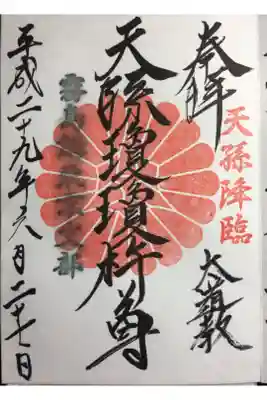 奉拝
天孫降臨
大道教
天孫瓊瓊杵尊
平成二十九年六月二十七日